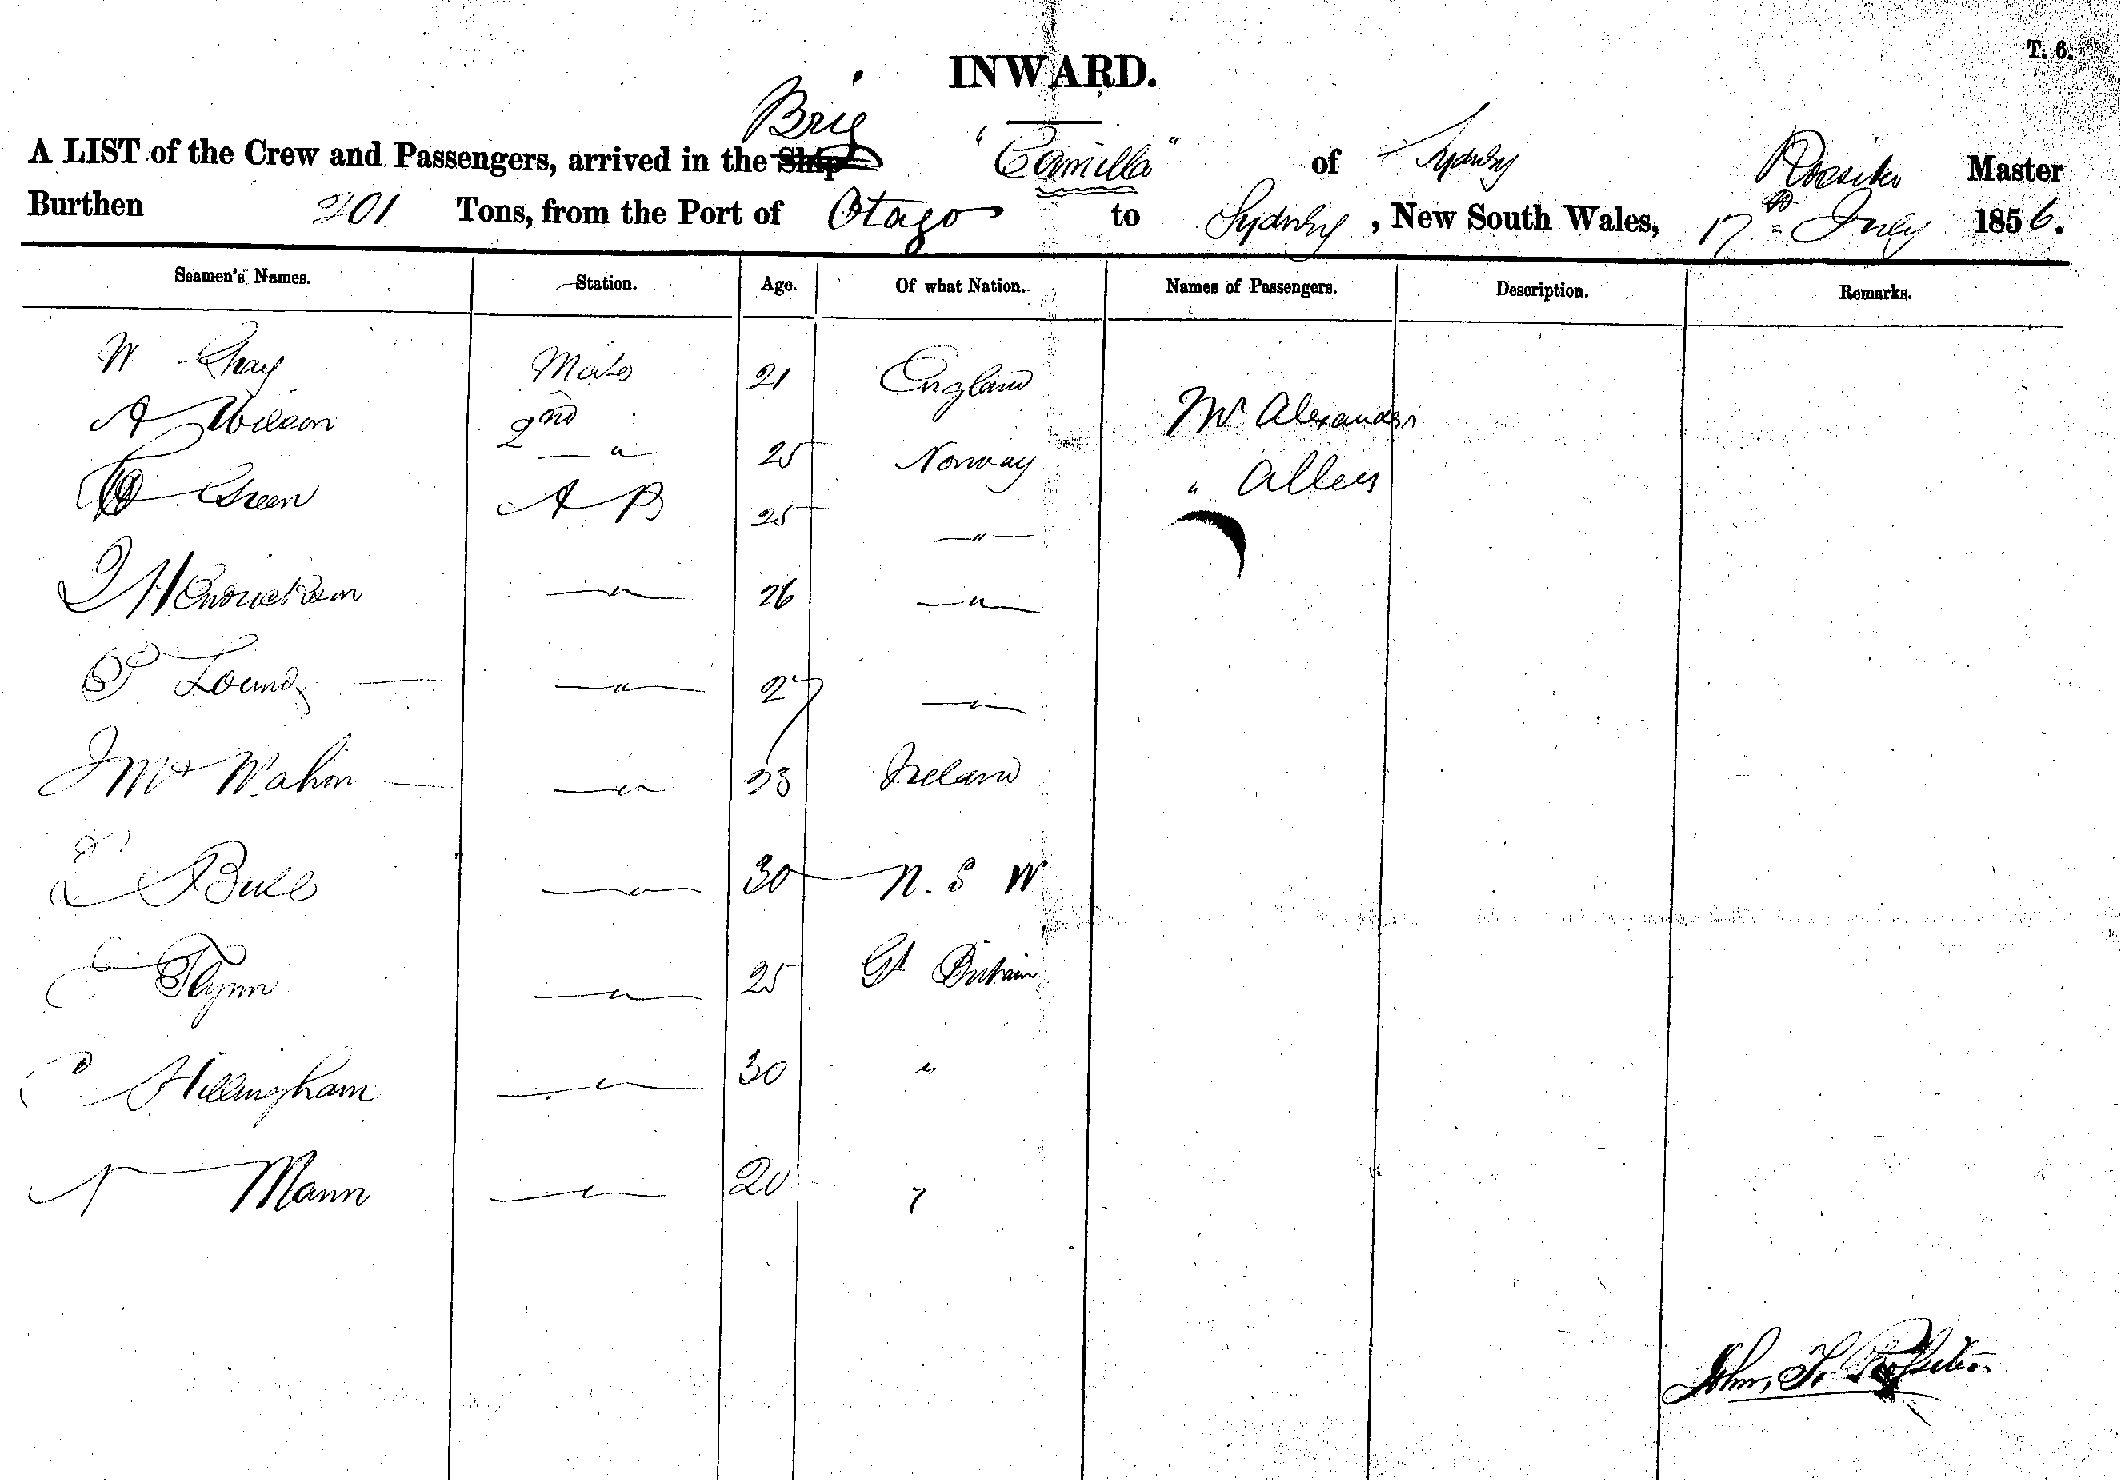 T. 6.
INWARD.
Brig
A LIST of the Crew and Passengers, arrived in the Ship "Camilla" of Sydney Master
Burthen 201 Tons, from the Port of Otago to Sydney, New South Wales, 17th July 1856.
Seamen's Names. Station. Age. Of what Nation. Names of Passengers. Description. Remarks.
W Gray Mate 21 England
A Wilson 2nd " 25 Norway Mr Alexander
Green A B 25 " " Allen
Hendrickson " 26 "
" 27 "
J Mc Mahon " 23 Ireland
Bull " 30 N. S W
Flynn " 25 Gt Britain
Hillingham " 30 "
Mann " 20 "
John